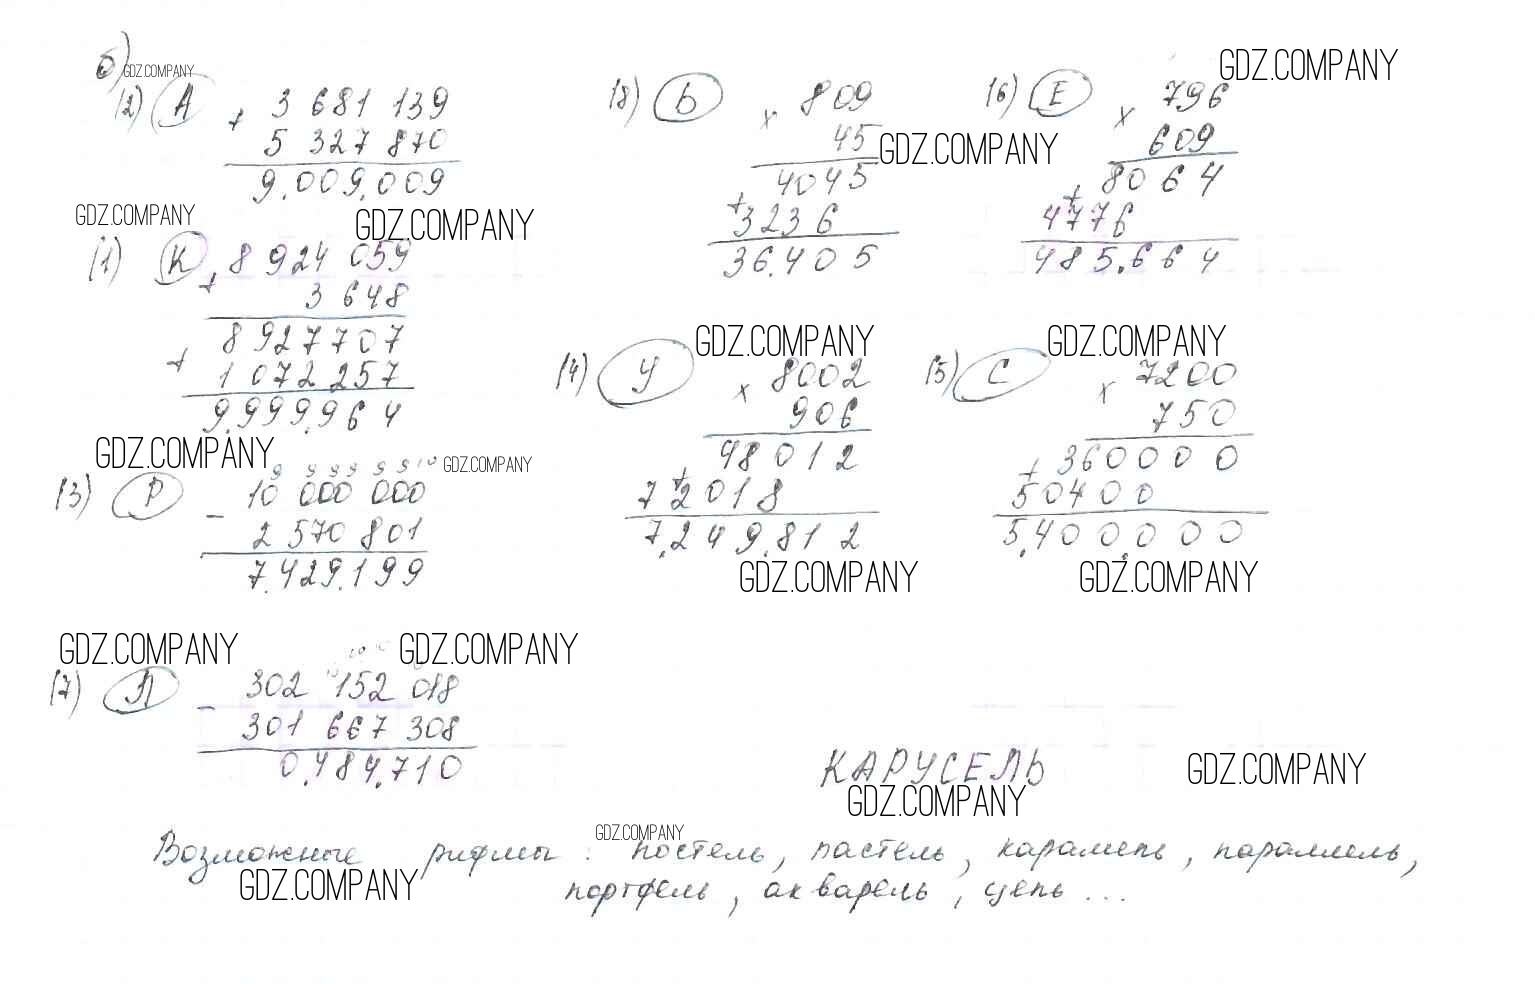 б) GDZ.COMPANY
(2) А
+ 3 681 139
5 327 870
9.009.009
(8) Ь
× 809
45
4045
+ 3236
36.405
(6) Е
× 796
609
+ 8064
4776
485.664
GDZ.COMPANY
GDZ.COMPANY
GDZ.COMPANY
GDZ.COMPANY
(1) К
+ 8 924 059
3 648
8 927 707
+ 1 072 257
9.999.964
GDZ.COMPANY
(4) У
× 8002
906
48012
+ 72018
7.249.812
GDZ.COMPANY
(5) С
× 7200
750
+ 360000
50400
5.400.000
GDZ.COMPANY
GDZ.COMPANY
(3) Р
9 9 9 9 9 9 10
- 10 000 000
2 570 801
7.429.199
GDZ.COMPANY
GDZ.COMPANY
GDZ.COMPANY
GDZ.COMPANY
(7) Л
- 302 152 018
301 667 308
0.484.710
КАРУСЕЛЬ
GDZ.COMPANY
GDZ.COMPANY
GDZ.COMPANY
Возможные рифмы: постель, пастель, карамель, параллель,
GDZ.COMPANY
портфель, акварель, цепь...